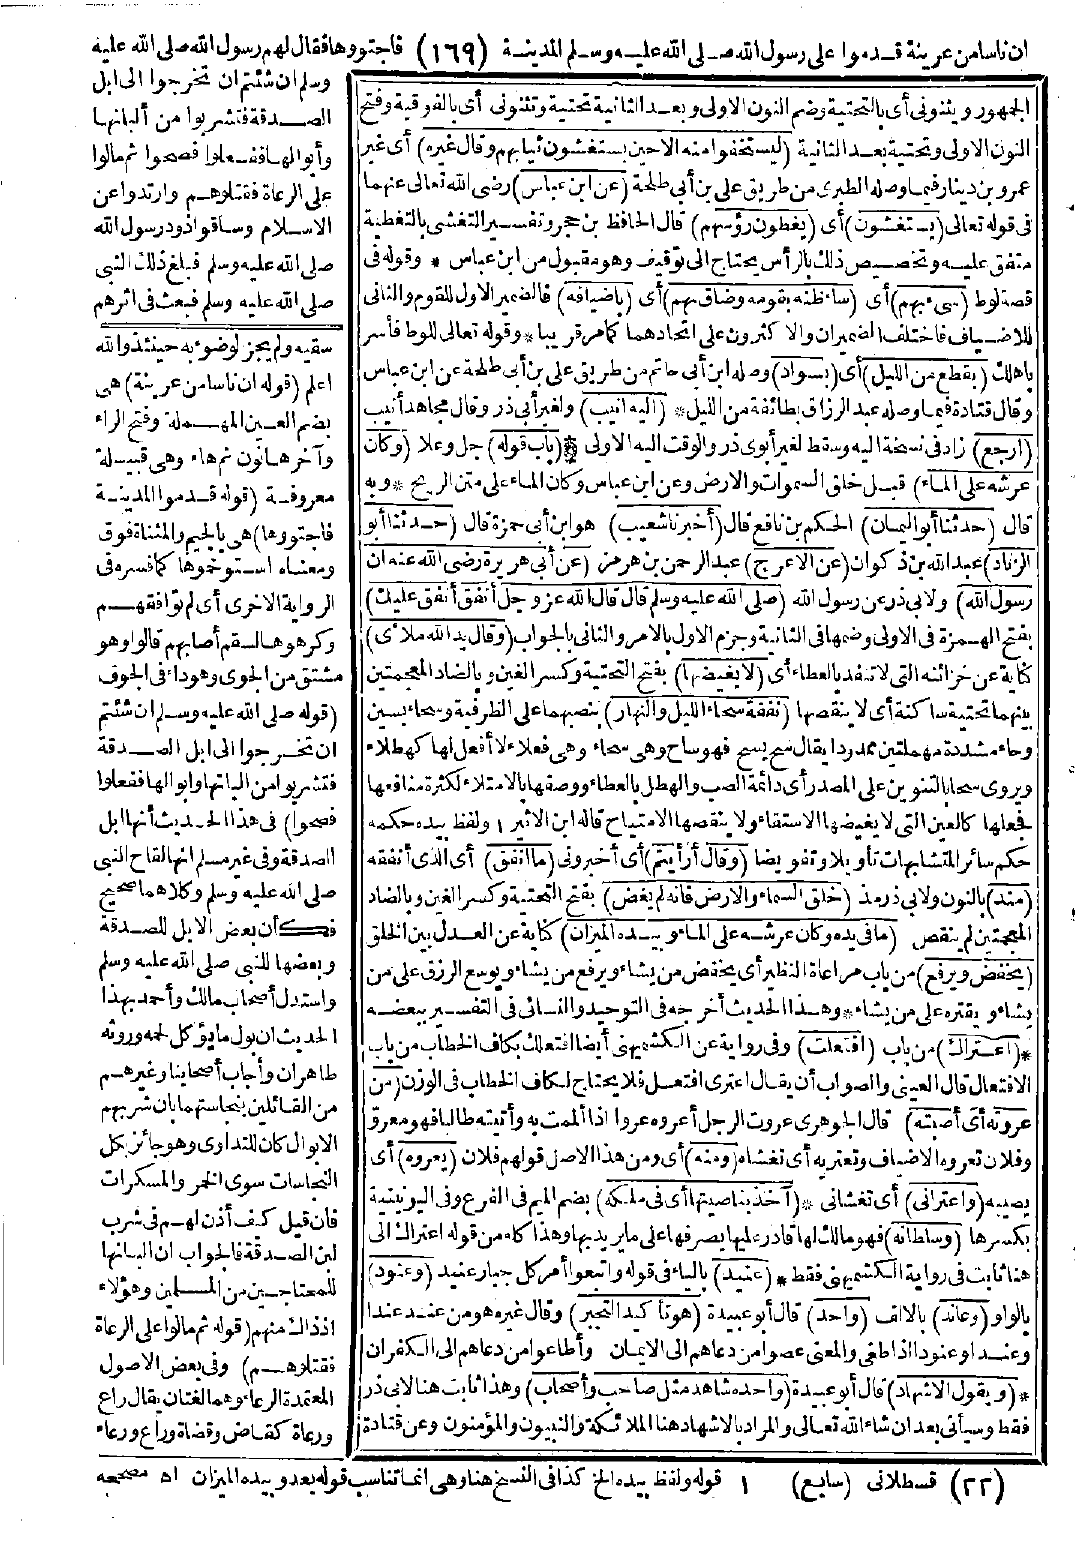 ان ناسا من عرينة قدموا على رسول الله صلى الله عليه وسلم المدينة (١٦٩) فاجتووها فقال لهم رسول الله صلى الله عليه
وسلم ان شئتم ان تخرجوا الى ابل
الصدقة فتشربوا من ألبانها
وأبوالها ففعلوا فصحوا ثم مالوا
على الرعاة فقتلوهم وارتدوا عن
الاسلام وساقوا ذود رسول الله
صلى الله عليه وسلم فبلغ ذلك النبي
صلى الله عليه وسلم فبعث في اثرهم
الجمهور ويثنوني أى بالتحتية وضم النون الاولى وبعد الثانية تحتية وتثنوني أى بالفوقية وفتح
النون الاولى وتحتية بعد الثانية (ليستخفوا منه الاحين يستغشون ثيابهم وقال غيره) أى غير
عمرو بن دينار فيما وصله الطبري من طريق على بن أبى طلحة (عن ابن عباس) رضى الله تعالى عنهما
فى قوله تعالى (يستغشون) أى (يغطون رؤسهم) قال الحافظ بن حجر وتفسير التغشى بالتغطية
متفق عليه وتخصيص ذلك بالرأس يحتاج الى توقيف وهو مقبول من ابن عباس * وقوله فى
قصة لوط (سىء بهم) أى (ساء ظنه بقومه وضاق بهم) أى (باضيافه) فالضمير الاول للقوم والثانى
للاضياف فاختلف الضميران والاكثرون على اتحادهما كما مر قريبا * وقوله تعالى للوط فأسر
باهلك (بقطع من الليل) أى (بسواد) وصله ابن أبى حاتم من طريق على بن أبى طلحة عن ابن عباس
وقال قتادة فيما وصله عبد الرزاق بطائفة من الليل * (اليه انيب) ولغير أبى ذر وقال مجاهد أنيب
(ارجع) زاد فى نسخة اليه وسقط لغير أبوى ذر والوقت اليه الاولى * (باب قوله) جل وعلا (وكان
عرشه على الماء) قبل خلق السموات والارض وعن ابن عباس وكان الماء على متن الريح * وبه
قال (حدثنا أبو اليمان) الحكم بن نافع قال (أخبرنا شعيب) هو ابن أبى حمزة قال (حدثنا أبو
الزناد) عبد الله بن ذكوان (عن الاعرج) عبد الرحمن بن هرمز (عن أبى هريرة رضى الله عنه ان
رسول الله) ولابى ذر عن رسول الله (صلى الله عليه وسلم قال قال الله عز وجل أنفق أنفق عليك)
بفتح الهمزة فى الاولى وضمها فى الثانية وجزم الاول بالامر والثانى بالجواب (وقال يد الله ملأى)
كناية عن خزائنه التى لا تنفد بالعطاء أى (لا يغيضها) بفتح التحتية وكسر الغين وبالضاد المعجمتين
بينهما تحتية ساكنة أى لا ينقصها (نفقة سحاء الليل والنهار) بنصبهما على الظرفية وسحاء بسين
وحاء مشددة مهملتين ممدودا يقال سح يسح فهو ساح وهى سحاء وهى فعلاء لا أفعل لها كهطلاء
ويروى سحا بالتنوين على المصدر أى دائمة الصب والهطل بالعطاء ووصفها بالامتلاء لكثرة منافعها
فجعلها كالعين التى لا يغيضها الاستقاء ولا ينقصها الامتياح قاله ابن الاثير ١ ولفظ بيده حكمه
حكم سائر المتشابهات تأويلا وتفويضا (وقال أرأيتم) أى أخبرونى (ما أنفق) أى الذى أنفقه
(منذ) بالنون ولابى ذر مذ (خلق السماء والارض فانه لم يغض) بفتح التحتية وكسر الغين وبالضاد
المعجمتين لم ينقص (ما فى يده وكان عرشه على الماء وبيده الميزان) كناية عن العدل بين الخلق
(يخفض ويرفع) من باب مراعاة النظير أى يخفض من يشاء ويرفع من يشاء ويوسع الرزق على من
يشاء ويقتره على من يشاء * وهذا الحديث أخرجه فى التوحيد والنسائى فى التفسير ببعضه
* (اعتراك) من باب (افتعلت) وفى رواية عن الكشميهنى أيضا افتعلك بكاف الخطاب من باب
الافتعال قال العينى والصواب أن يقال اعترى افتعل فلا يحتاج لكاف الخطاب فى الوزن (من
عروته أى أصبته) قال الجوهرى عروت الرجل أعروه عروا اذا ألممت به وأتيته طالبا فهو معرو
وفلان تعروه الاضياف وتعتريه أى تغشاه (ومنه) أى ومن هذا الاصل قولهم فلان (يعروه) أى
يصيبه (واعترانى) أى تغشانى * (آخذ بناصيتها أى فى ملكه) بضم الميم فى الفرع وفى اليونينية
بكسرها (وسلطانه) فهو مالك لها قادر عليها يصرفها على ما يريد بها وهذا كله من قوله اعتراك الى
هنا ثابت فى رواية الكشميهنى فقط * (عنيد) بالياء فى قوله واتبعوا أمر كل جبار عنيد (وعنود)
بالواو (وعاند) بالالف (واحد) قال أبو عبيدة (هو تأكيد التجبر) وقال غيره هو من عند عندا
وعندا وعنودا اذا طغى والمعنى عصوا من دعاهم الى الايمان وأطاعوا من دعاهم الى الكفران
* (ويقول الاشهاد) قال أبو عبيدة (واحده شاهد مثل صاحب وأصحاب) وهذا ثابت هنا لابى ذر
فقط وسيأتى بعد ان شاء الله تعالى والمراد بالاشهاد هنا الملائكة والنبيون والمؤمنون وعن قتادة
سقيه ولم يجز لوضوئه حينئذ والله
اعلم (قوله ان ناسا من عرينة) هى
بضم العين المهملة وفتح الراء
وآخرها نون ثم هاء وهى قبيلة
معروفة (قوله قدموا المدينة
فاجتووها) هى بالجيم والمثناة فوق
ومعناه استوخموها كما فسره فى
الرواية الاخرى أى لم توافقهم
وكرهوها لسقم أصابهم قالوا وهو
مشتق من الجوى وهو داء فى الجوف
(قوله صلى الله عليه وسلم ان شئتم
ان تخرجوا الى ابل الصدقة
فتشربوا من البانها وابوالها ففعلوا
فصحوا) فى هذا الحديث أنها ابل
الصدقة وفى غير مسلم انها لقاح النبى
صلى الله عليه وسلم وكلاهما صحيح
فكأن بعض الابل للصدقة
وبعضها للنبى صلى الله عليه وسلم
واستدل أصحاب مالك وأحمد بهذا
الحديث ان بول ما يؤكل لحمه وروثه
طاهران وأجاب أصحابنا وغيرهم
من القائلين بنجاستهما بان شربهم
الابوال كان للتداوى وهو جائز بكل
النجاسات سوى الخمر والمسكرات
فان قيل كيف أذن لهم فى شرب
لبن الصدقة فالجواب ان البانها
للمحتاجين من المسلمين وهؤلاء
اذ ذاك منهم (قوله ثم مالوا على الرعاة
فقتلوهم) وفى بعض الاصول
المعتمدة الرعاء وهما لغتان يقال راع
ورعاة كقاض وقضاة وراع ورعاء
(٢٢) قسطلانى (سابع) ١ قوله ولفظ بيده الخ كذا فى النسخ هنا وهى انما تناسب قوله بعد وبيده الميزان اه مصححه